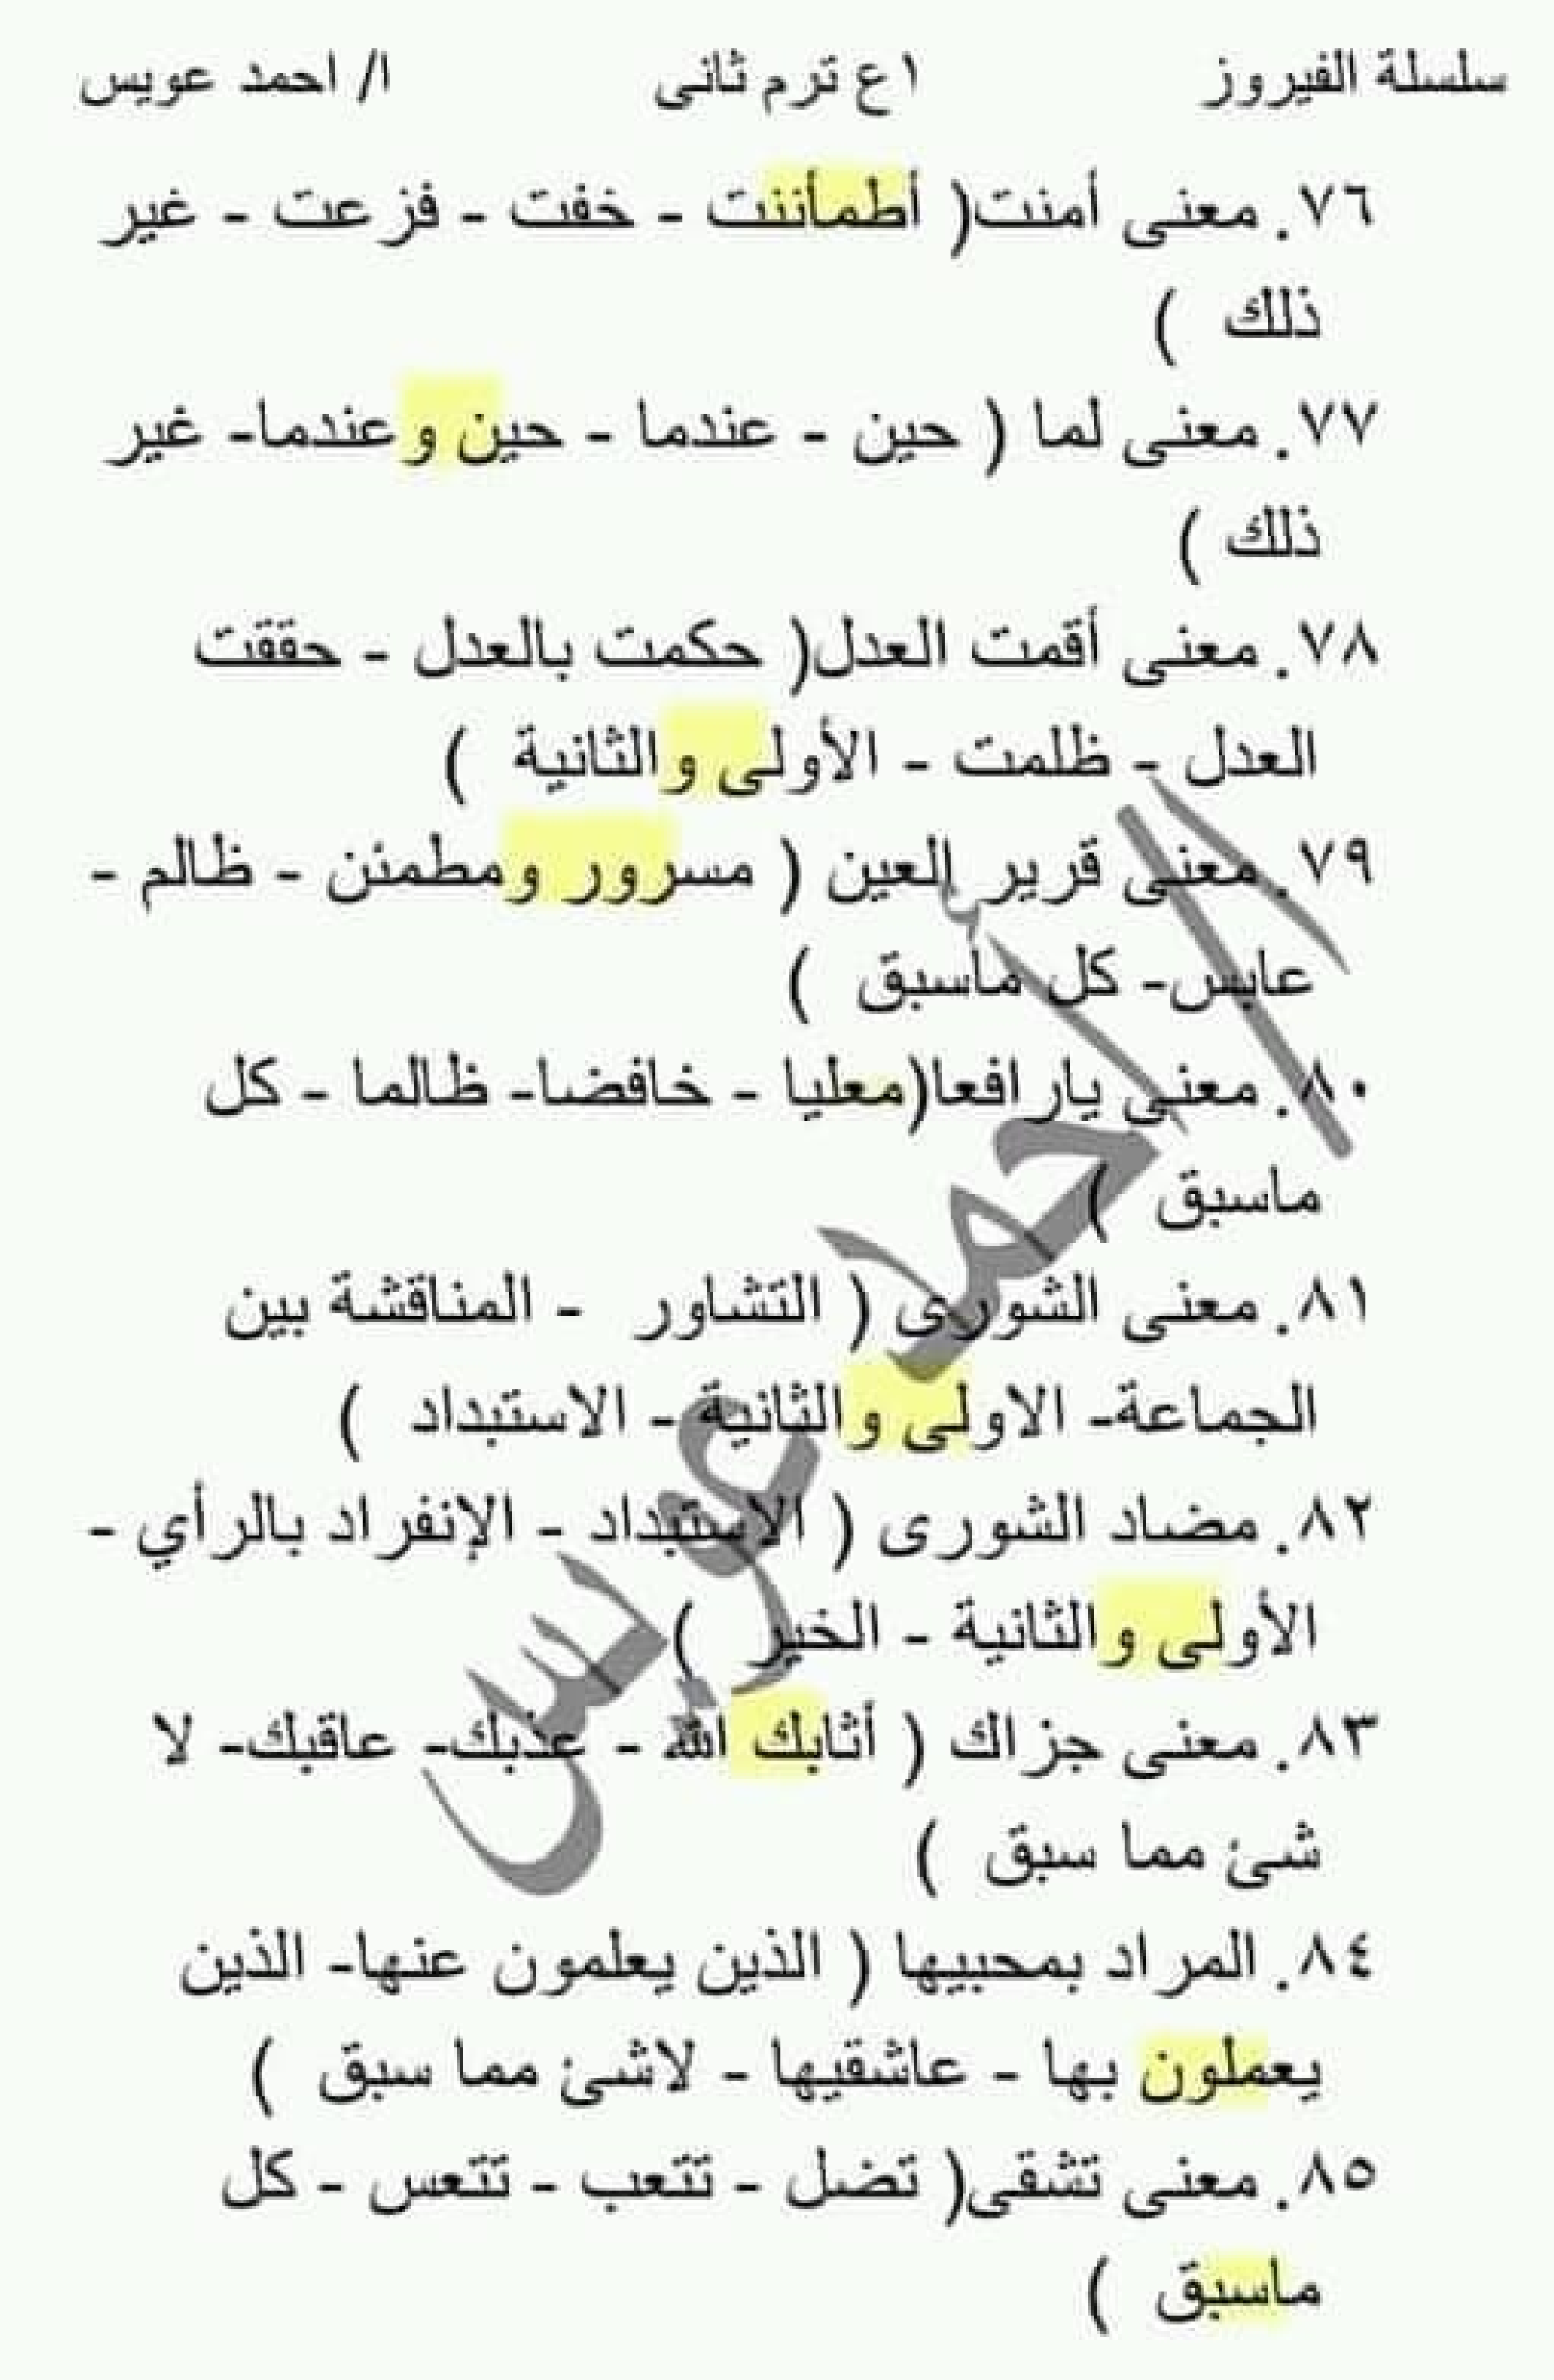 سلسلة الفيروز ١ع ترم ثانى ا/ احمد عويس
٧٦. معنى أمنت( أطمأننت - خفت - فزعت - غير
ذلك )
٧٧. معنى لما ( حين - عندما - حين وعندما- غير
ذلك )
٧٨. معنى أقمت العدل( حكمت بالعدل - حققت
العدل - ظلمت - الأولى والثانية )
٧٩. معنى قرير العين ( مسرور ومطمئن - ظالم -
عابس- كل ماسبق )
٨٠. معنى يارافعا(معليا - خافضا- ظالما - كل
ماسبق )
٨١. معنى الشورى ( التشاور - المناقشة بين
الجماعة- الاولى والثانية - الاستبداد )
٨٢. مضاد الشورى ( الإستبداد - الإنفراد بالرأي -
الأولى والثانية - الخير )
٨٣. معنى جزاك ( أثابك الله - عذبك- عاقبك- لا
شئ مما سبق )
٨٤. المراد بمحبيها ( الذين يعلمون عنها- الذين
يعملون بها - عاشقيها - لاشئ مما سبق )
٨٥. معنى تشقى( تضل - تتعب - تتعس - كل
ماسبق )
ا/ أحمد عويس